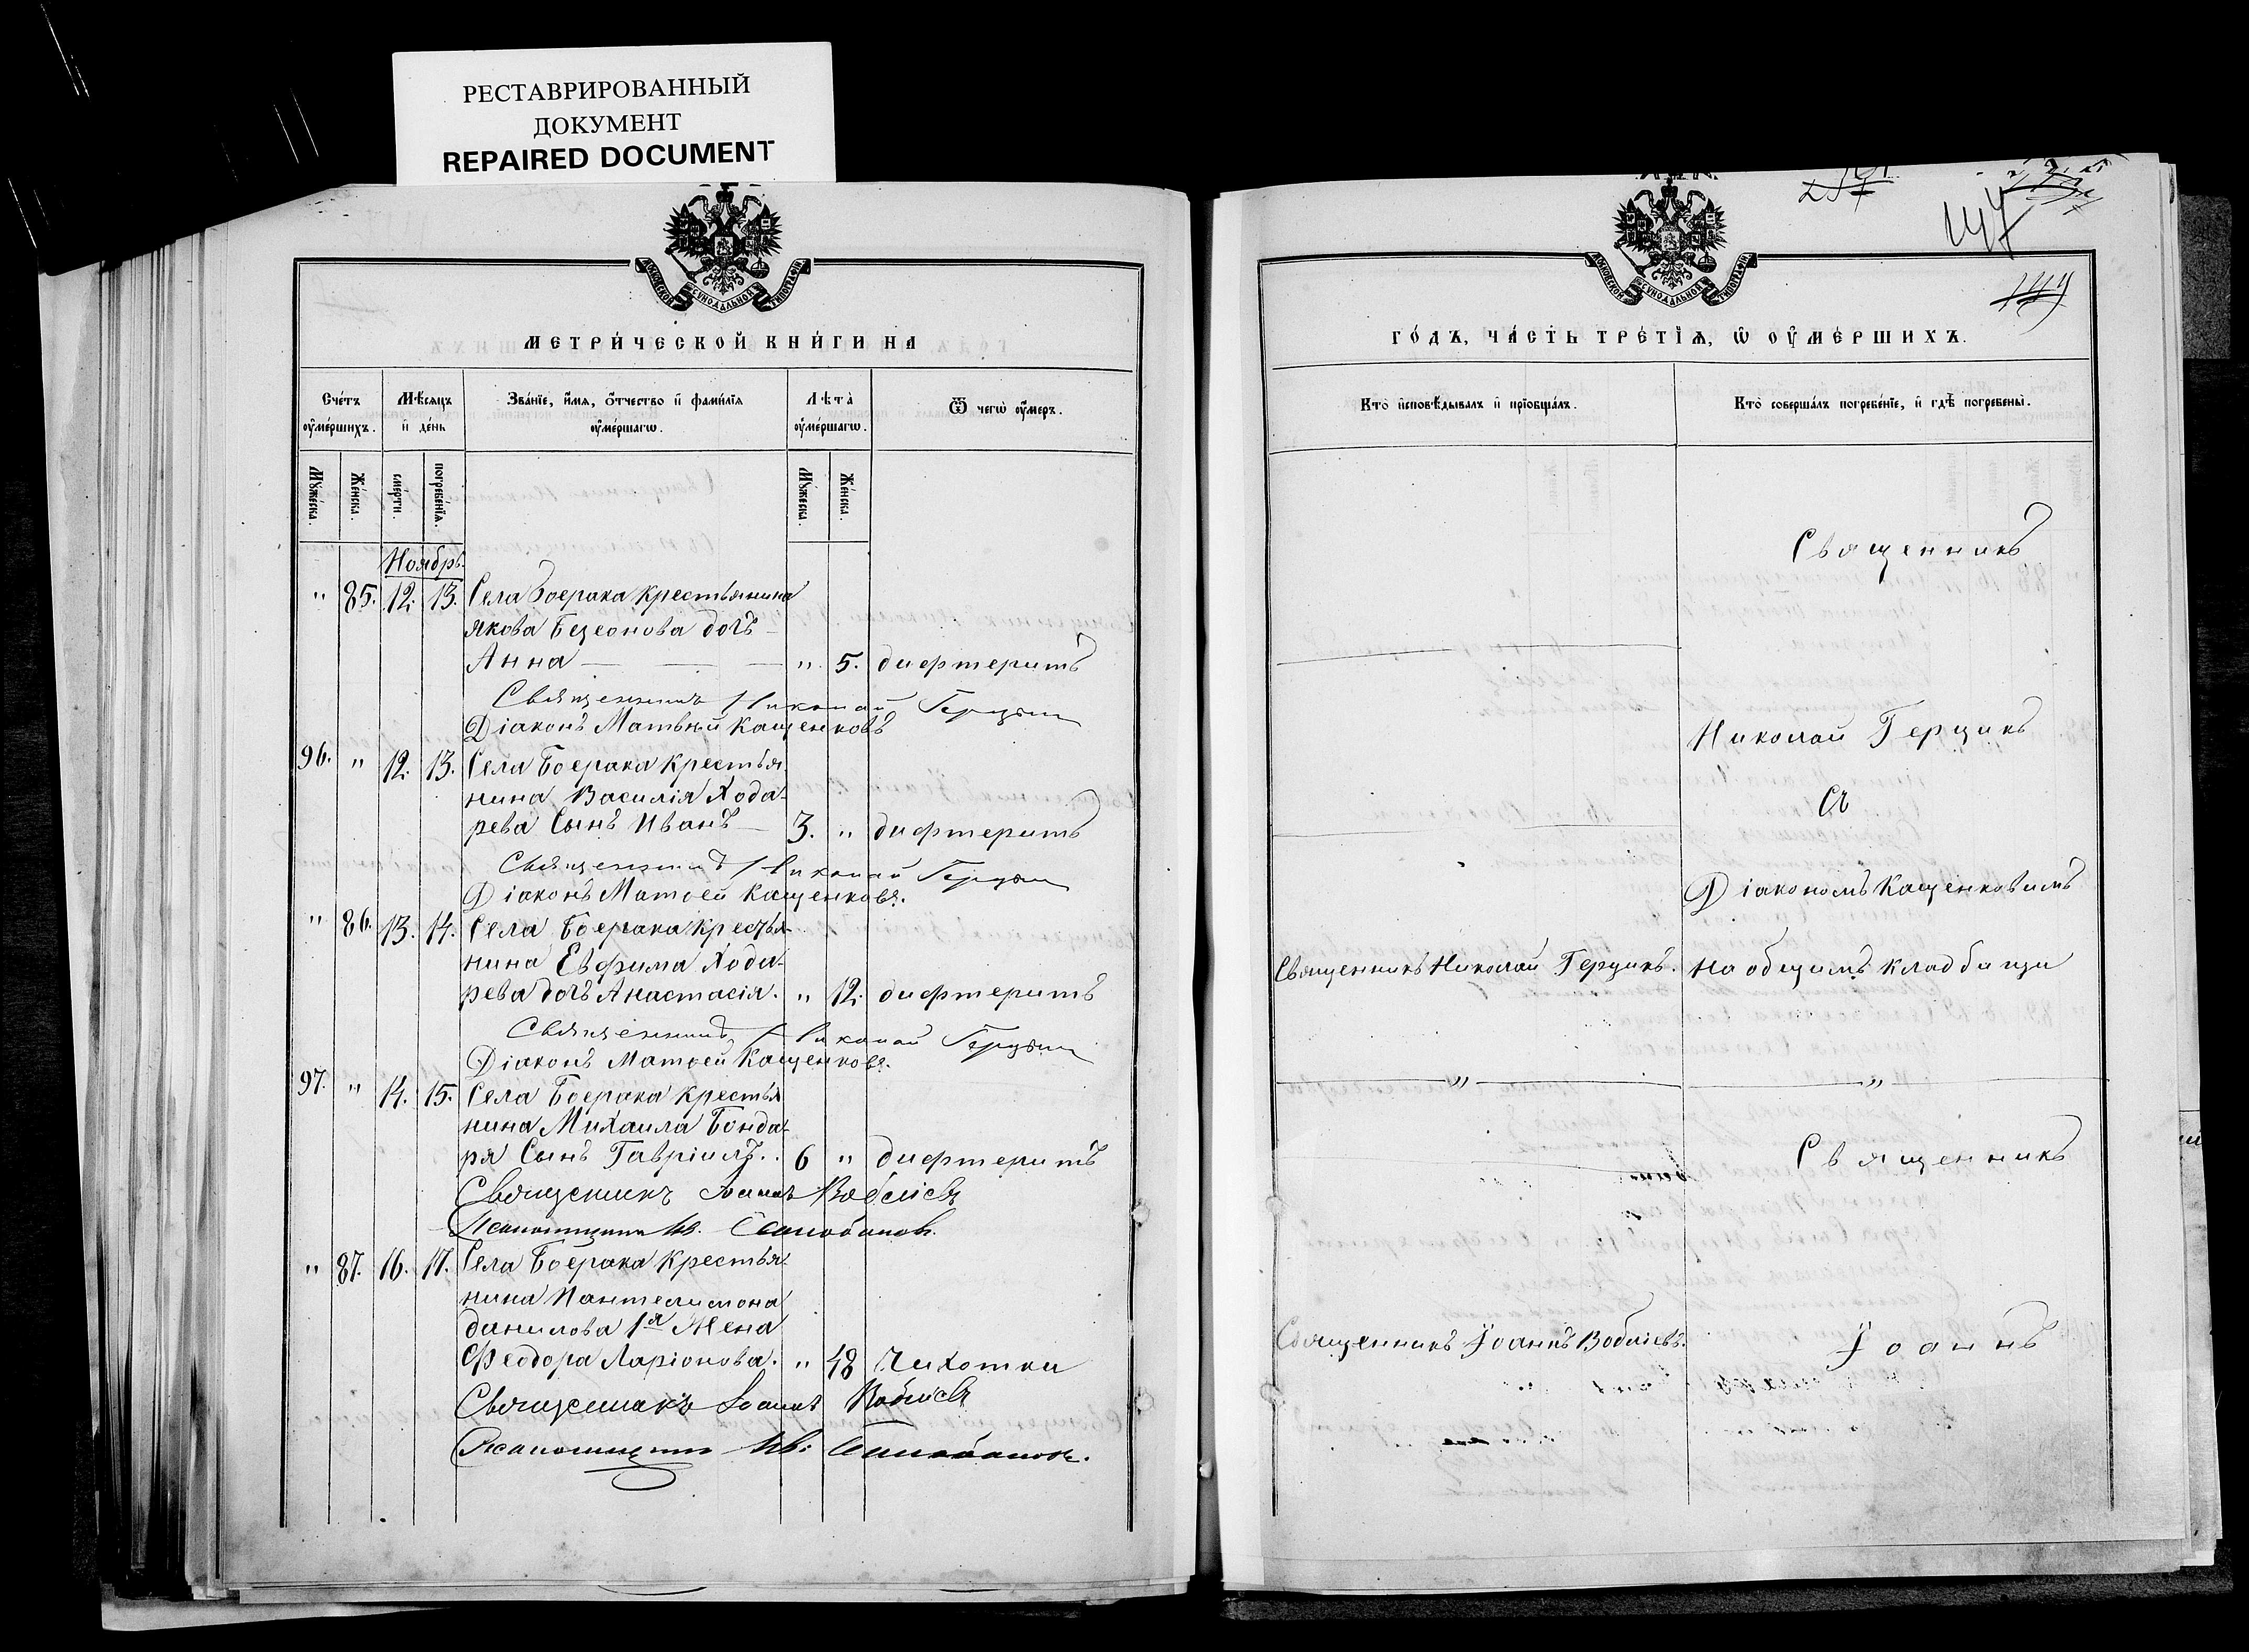 РЕСТАВРИРОВАННЫЙ
ДОКУМЕНТ
REPAIRED DOCUMENT
МОСКОВСКОЙ СѴНОДАЛЬНОЙ ТИПОГРАФІИ
МЕТРИ́ЧЕСКОЙ КНИ́ГИ НА
Сче́тъ ᲂумершихъ.
Мѣсяцъ и день
Зва́нїе, и́мя, ѻ҆́тчество и҆ фами́лїя ᲂумершагѡ.
Лѣта̀ ᲂумершагѡ.
Ѿ чегѡ̀ ᲂумеръ.
Мꙋжеска.
Же́нска.
сме́рти.
погребе́нїя.
Мꙋжеска.
Же́нска.
Ноябрь.
" 85. 12. 13. Села Боерака крестьянина
Якова Безеонова дочь
Анна — " 5. дифтеритъ
Священникъ Николай Герцикъ
Діаконъ Матвѣй Кащенковъ
96. " 12. 13. Села Боерака крестья
нина Василія Хода-
рева Сынъ Иванъ — 3. " дифтеритъ
Священникъ Николай Герцикъ
Діаконъ Матѳей Кащенковъ.
" 86. 13. 14. Села Боерака крестья-
нина Евфима Хода-
рева дочь Анастасія. " 12. дифтеритъ
Священникъ Николай Герцикъ
Діаконъ Матѳей Кащенковъ.
97. " 14. 15. Села Боерака крестья
нина Михаила Бонда-
ря Сынъ Гавріилъ. 6 " дифтеритъ
Священникъ Іоаннъ
Псаломщикъ Ив.
" 87. 16. 17. Села Боерака крестья-
нина Пантелимона
данилова 1я Жена
Феодора Ларіонова. " 48 Чихотки
Священникъ Іоаннъ
Псаломщикъ Ив.
МОСКОВСКОЙ СѴНОДАЛЬНОЙ ТИПОГРАФІИ
147
ГО́ДЪ, ЧА́СТЬ ТРЕ́ТЇѦ, Ѡ ᲂУМЕ́РШИХЪ.
Кто̀ и҆сповѣ́дывалъ и҆ прїобща́лъ.
Кто̀ соверша́лъ погребе́нїе, и҆ гдѣ̀ погребены̀.
Священникъ
Николай Герцикъ
Съ
Діакономъ Кащенковимъ
Священникъ Николай Герцикъ. на общимъ кладбищи
" "
Священникъ
Священникъ Іоаннъ
Іоаннъ